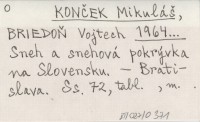 O
KONČEK Mikuláš,
BRIEDOŇ Vojtech 1964...
Sneh a snehová pokrývka
na Slovensku. – Brati-
slava. Ss. 72, tabl., m.